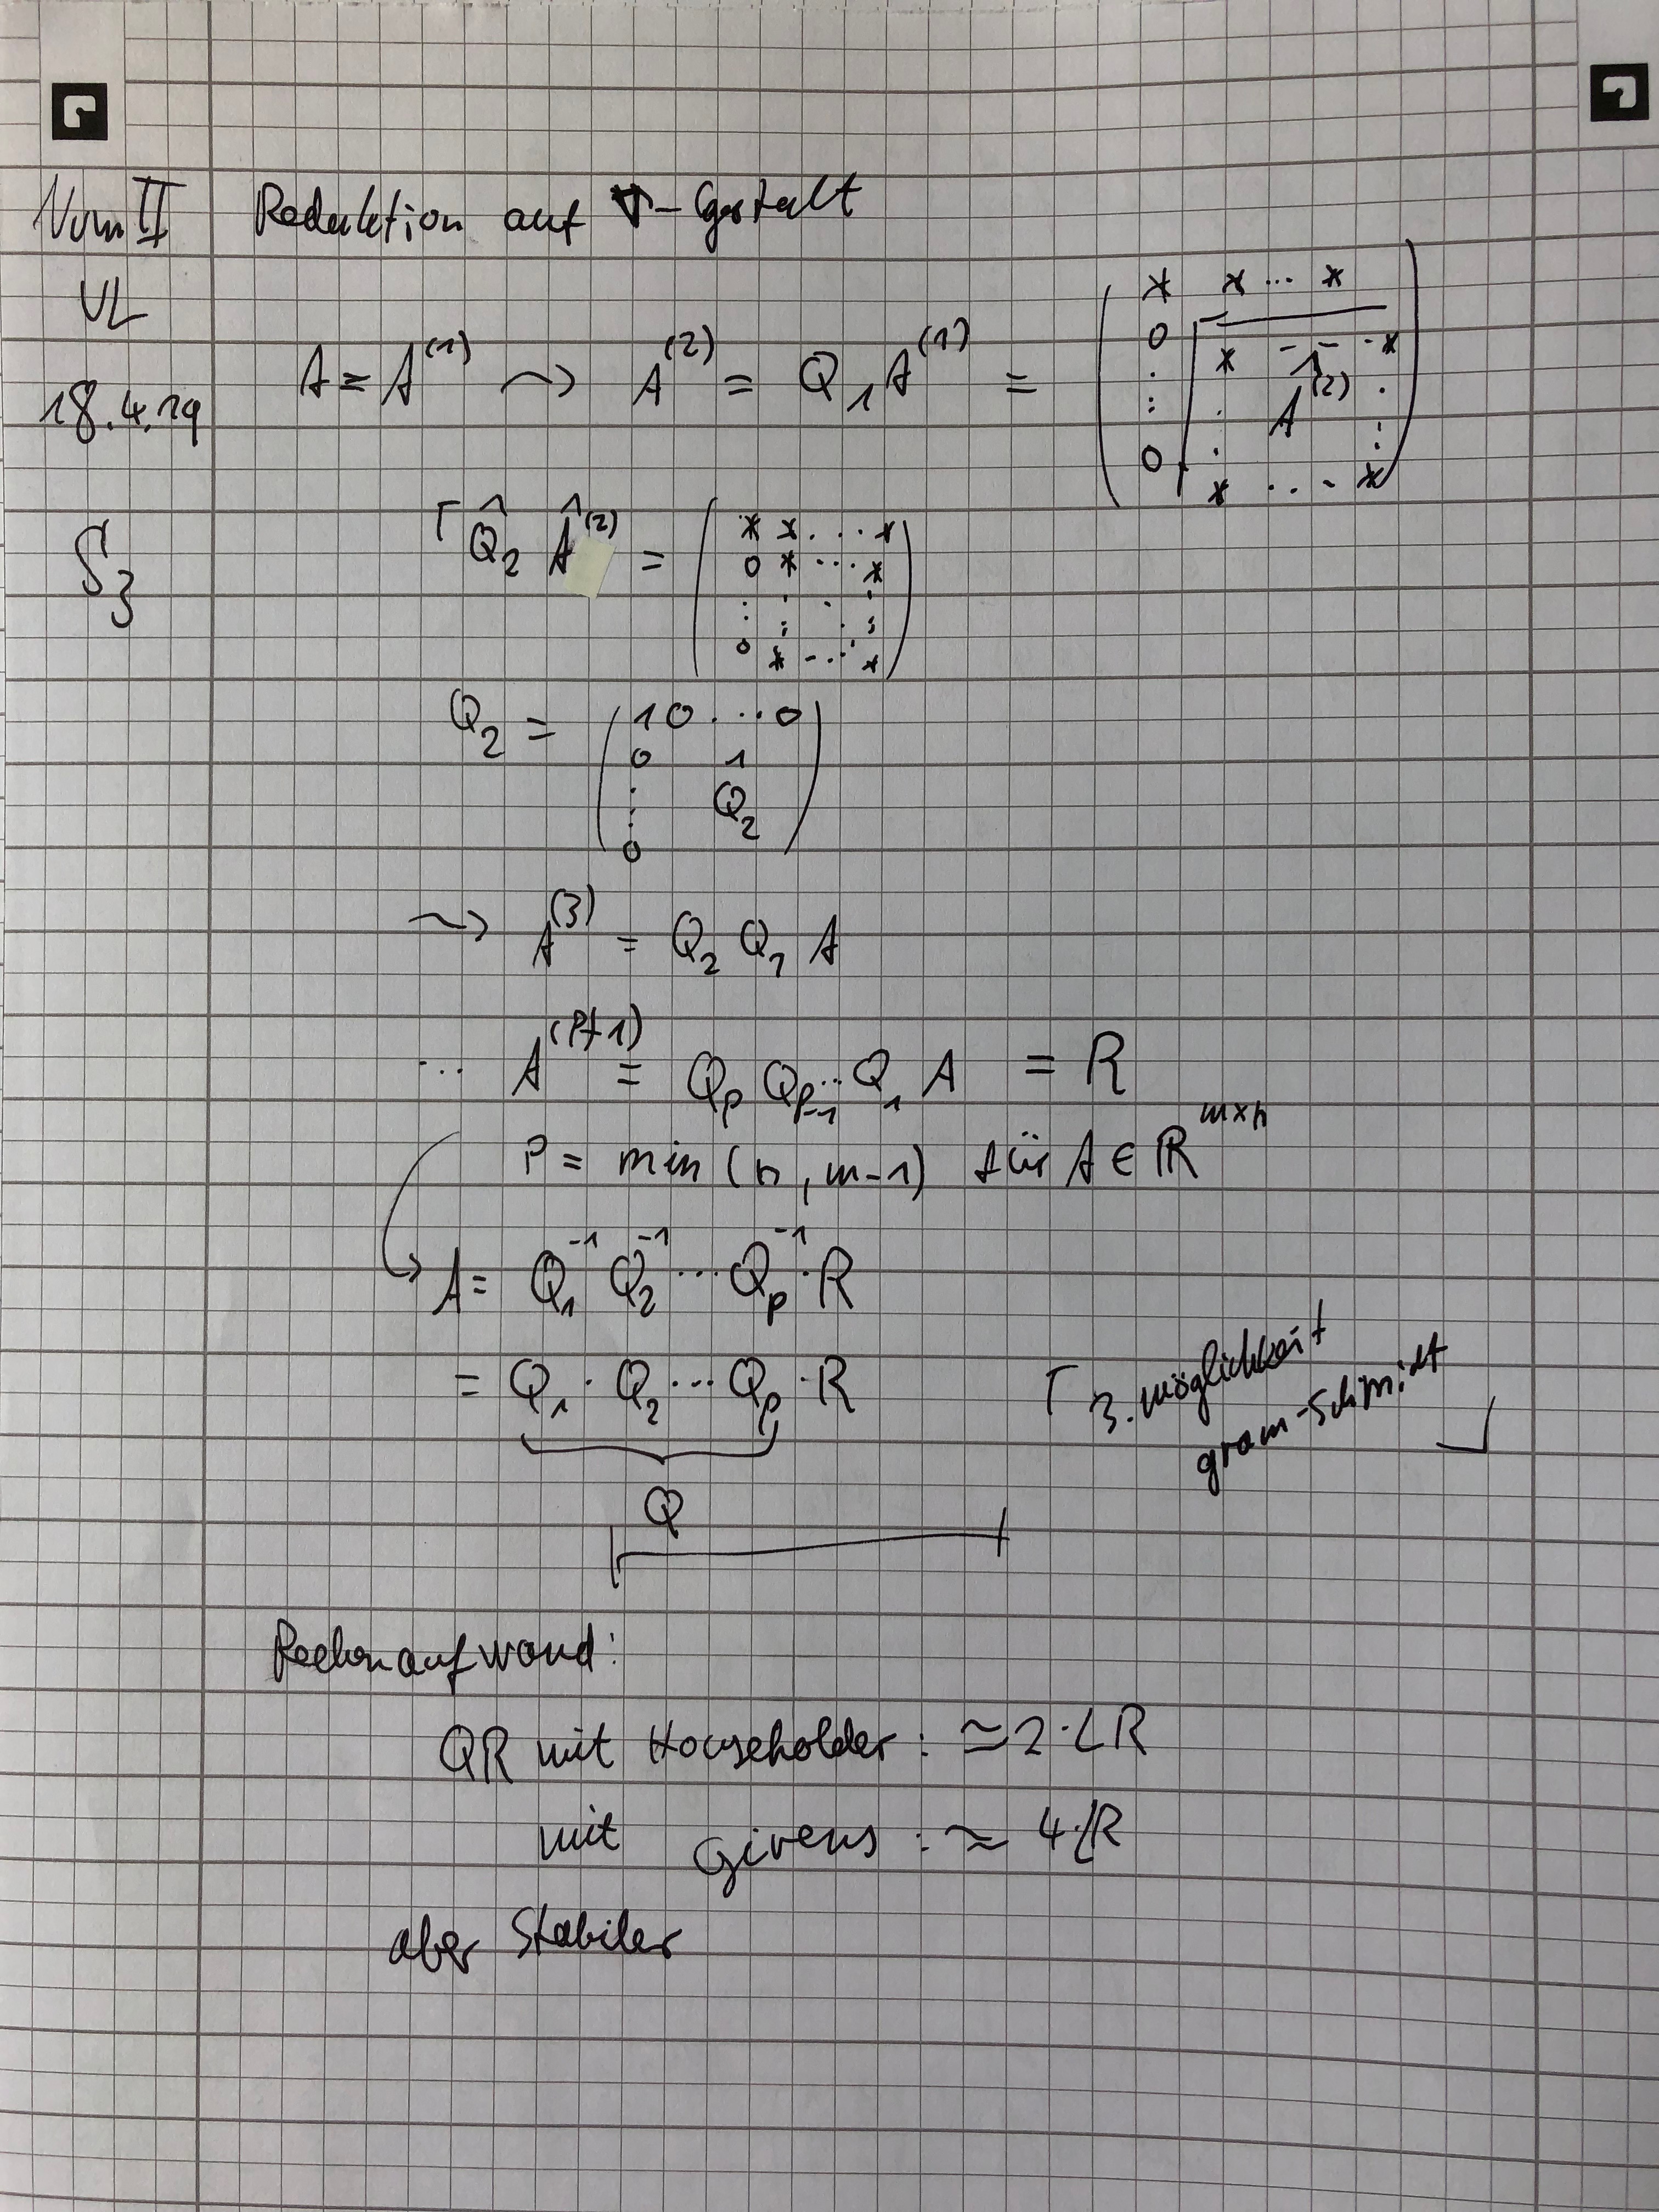 Num II
VL
18.4.19
S3
Reduktion auf ∇-Gestalt
A = A^(1) ⤳ A^(2) = Q_1 A^(1) = ( * * ... * / 0 * - - · * / : : Â^(2) : / 0 * ... * )
⌈ Q̂_2 Â^(2) = ( * * ... * / 0 * ... * / : : : / 0 * ... * )
Q_2 = ( 1 0 ... 0 / 0 1 / : Q_2 / 0 )
⤳ A^(3) = Q_2 Q_1 A
... A^(P+1) = Q_p Q_p-1 ... Q_1 A = R
P = min (n, m-1) für A ∈ ℝ^m×n
A = Q_1^-1 Q_2^-1 ... Q_p^-1 · R
= Q_1 · Q_2 ... Q_p · R
Q
⌈ 3. möglichkeit
gram-Schmidt ⌋
Rechenaufwand:
QR mit Householder: ≃ 2·LR
mit Givens: ≈ 4·LR
aber Stabiler